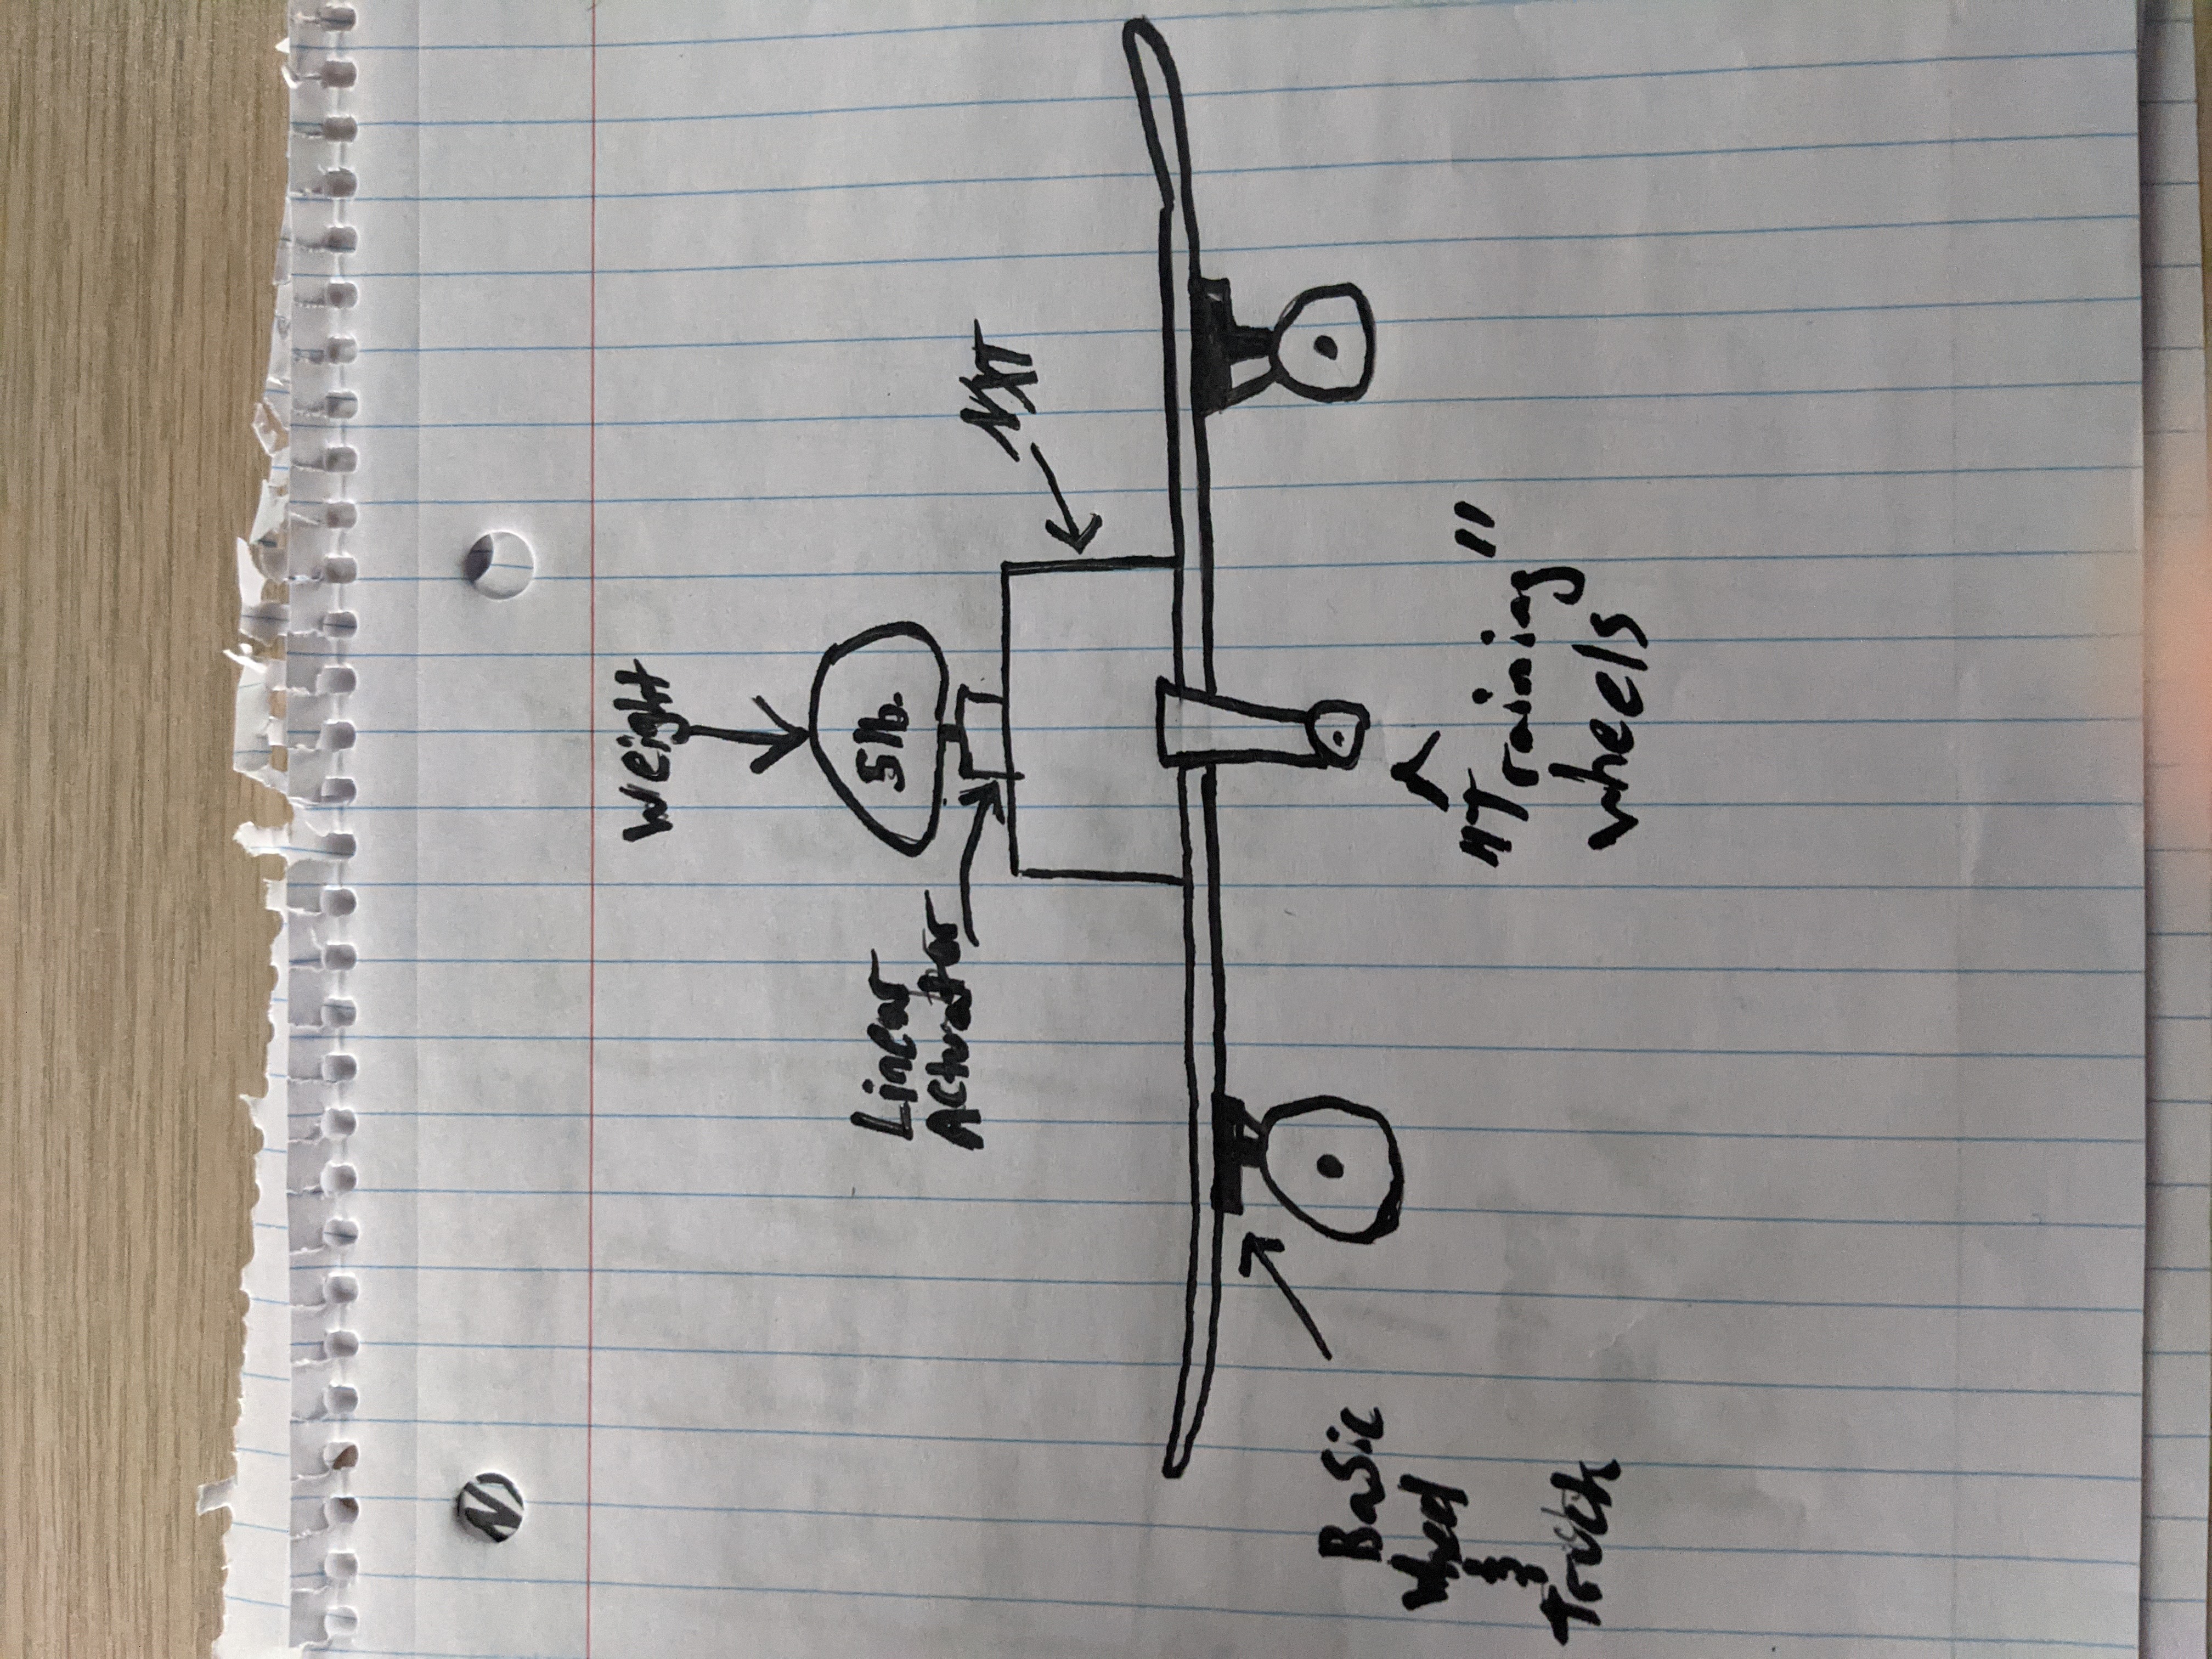 Weight
5lb.
NXT
Linear
Actuator
"Training"
wheels
Basic
wheel
&
Truck